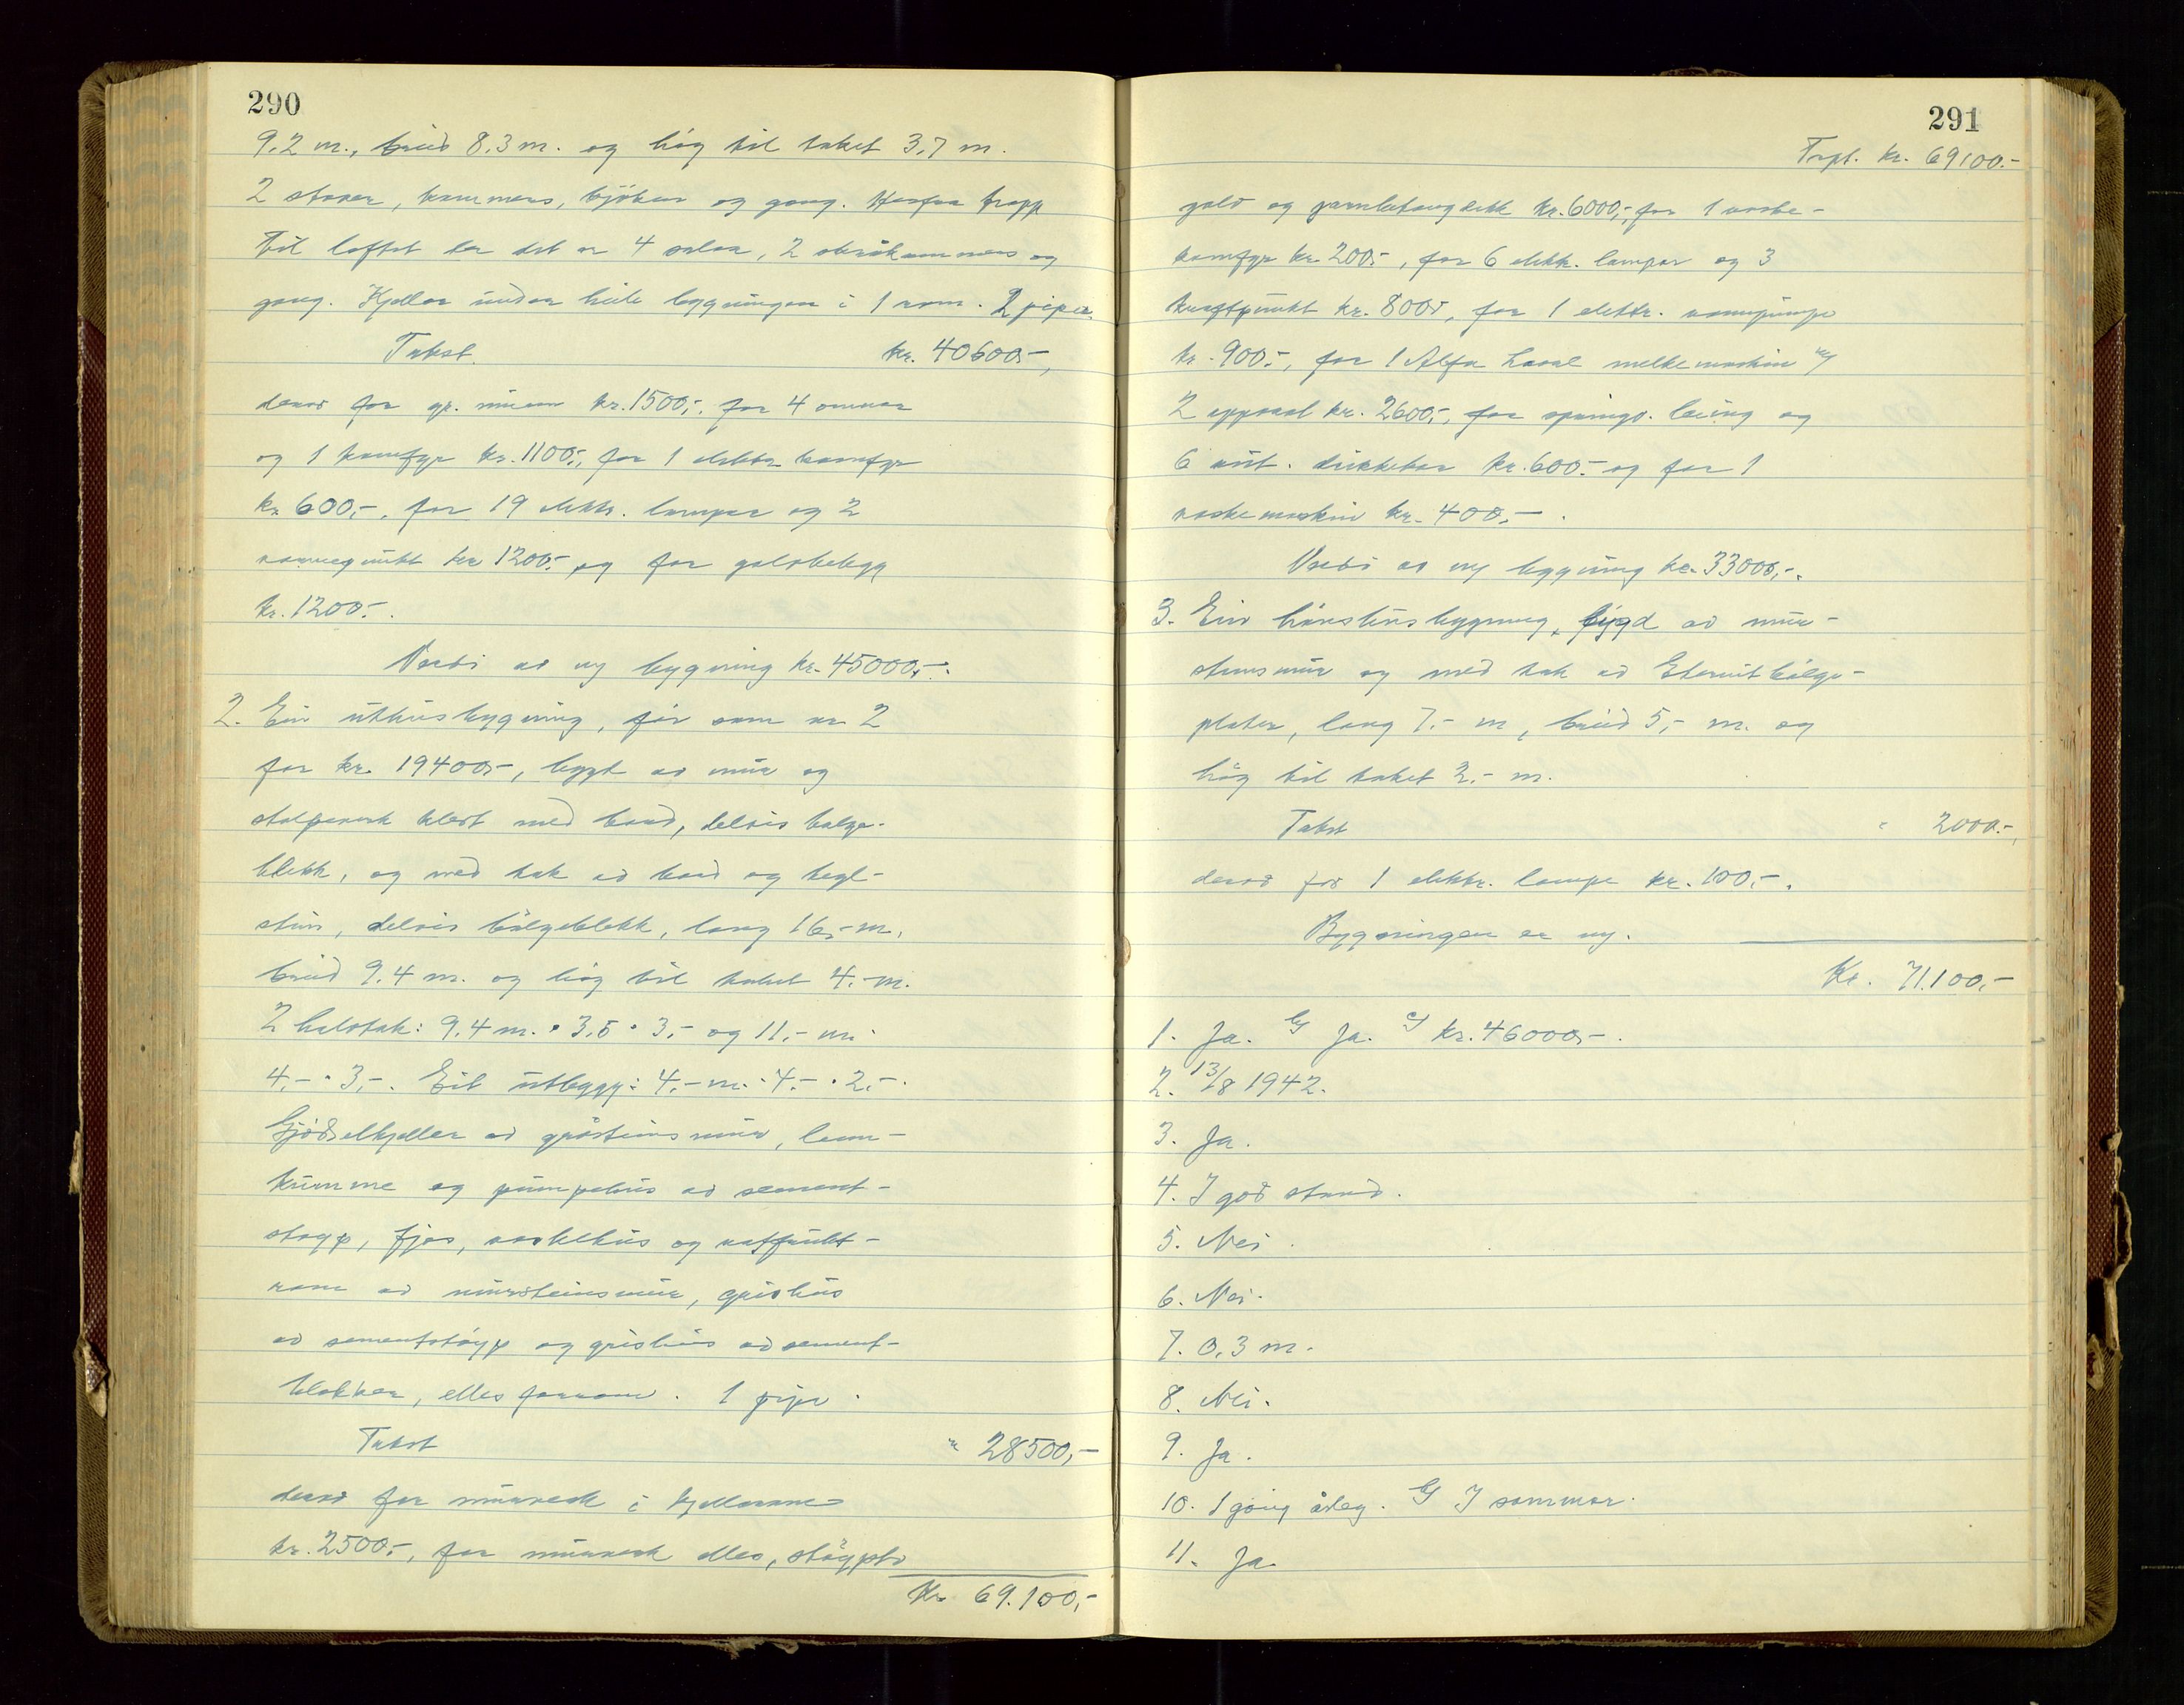 290
9,2 m., breid 8,3 m. og høg til taket 3,7 m.
2 stover, kammers, kjøken og gang. Herfra tropp
til loftet der det er 4 salar, 2 skråkammers og
gang. Kjellar under heile bygningen i 1 rom. 2 piper.
Takst kr. 40600,-,
derav for gr. muren kr. 1500,-, for 4 omnar
og 1 komfyr kr. 1100,-, for 1 elektr. komfyr
kr. 600,-, for 19 elektr. lampor og 2
varmepunkt kr. 1200,- og for golvbelegg
kr. 1200,-.
Verdi av ny bygning kr. 45000,-.
2. Ein uthusbygning, før som nr. 2
for kr. 19400,-, bygt av mur og
stolpeverk kledt med bord, delvis bølge-
blekk, og med tak av bord og tegl-
stein, delvis bølgeblekk, lang 16,- m.,
breid 9,4 m. og høg til taket 4,- m.
2 halvtak: 9,4 m. · 3,5 · 3,- og 11,- m.
4,- · 3,-. Eit utbygg: 4,- m. · 4,- · 2,-.
Gjødselkjeller av gråsteinsmur, land-
kumme og pumpehus av sement-
støyp, fjøs, vaskehus og
rom av mursteinsmur, grishus
av sementstøyp og grishus av sement-
blokker, elles forrom. 1 pipe.
Takst " 28500,-
derav for murverk i kjellarane
kr. 2500,-, for murverk elles, støypte
Kr. 69.100,-
291
Trpt. kr. 69100.-
golv og jarnbetongdekk kr. 6000,-, for 1 vaske-
komfyr kr. 200,-, for 6 elektr. lampor og 3
kraftpunkt kr. 800,-, for 1 elektr. vannpumpe
kr. 900,-, for 1 Alfa Laval melkemaskin m/
2 apparat kr. 2600,-, for springv. leiing og
6 aut. drikkekar kr. 600,- og for 1
vaskemaskin kr. 400,-.
Verdi av ny bygning kr. 33000,-.
3. Ein hønshusbygning, bygd av mur-
steinsmur og med tak av Eternit bølge-
plater, lang 7,- m, breid 5,- m. og
høg til taket 2,- m.
Takst " 2000.-,
derav for 1 elektr. lampe kr. 100,-.
Bygningen er ny.
Kr. 71.100,-
1. Ja. b/ Ja. c/ kr. 46000,-.
2. 13/8 1942.
3. Ja.
4. I god stand.
5. Nei.
6. Nei.
7. 0,3 m.
8. Nei.
9. Ja.
10. 1 gong årleg. b/ I sommar.
11. Ja.